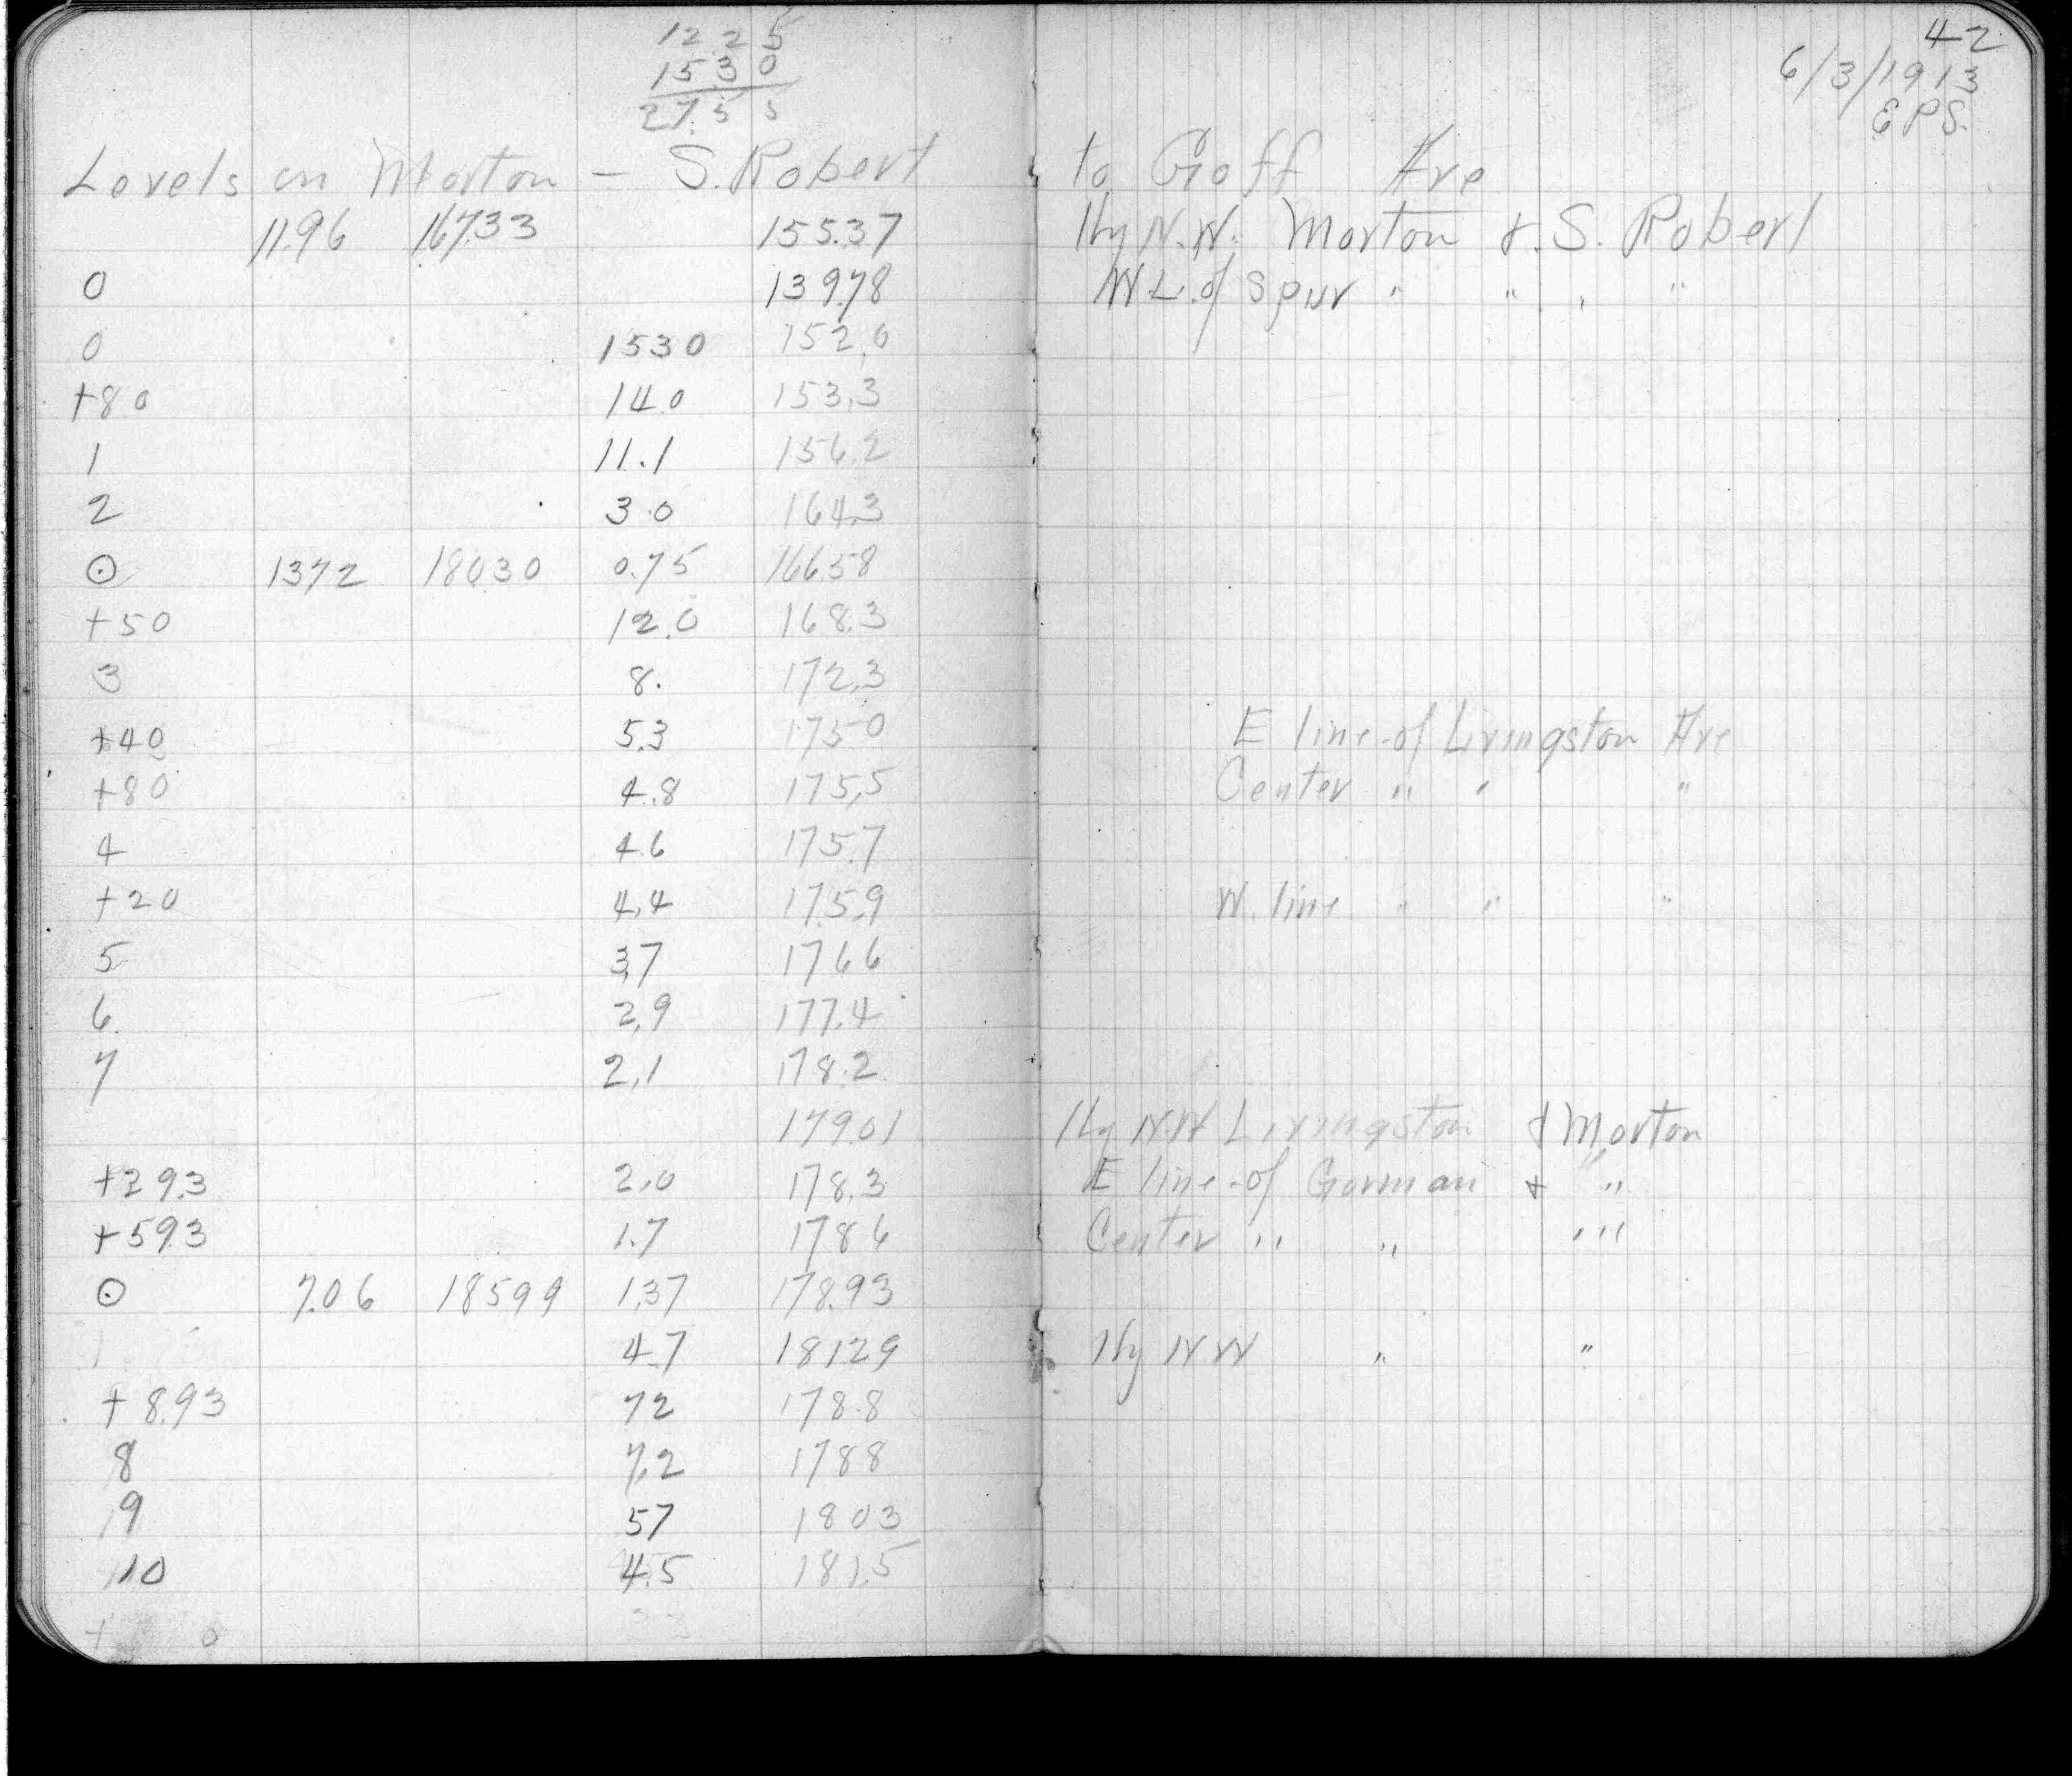 42
12.25
6/3/1913
15 30
27.5 5
E P S.
Levels on Morton - S. Robert to Goff Ave
11.96 167.33 155.37 Hy N.W. Morton & S. Robert
0 139.78 W L. of Spur " " " "
0 15 30 152.0
+80 14.0 153.3
1 11.1 156.2
2 3.0 164.3
⊙ 13 72 180.30 0.75 166.58
+50 12.0 168.3
3 8. 172.3
+40 5.3 175 0 E line of Livingston Ave
+80 4.8 175.5 Center " " "
4 4.6 175.7
+20 4.4 175.9 W. line " " "
5 3.7 176 6
6 2.9 177.4
7 2.1 178.2
179.01 Hy N.W Livingston & Morton
+29.3 2.0 178.3 E line of Gorman & "
+59.3 1.7 178 6 Center " " "
⊙ 7.06 185 99 1.37 178.93
4.7 181 29 Hy N W " "
+ 8.93 7 2 178.8
8 7.2 178 8
9 5 7 180 3
10 4.5 181.5